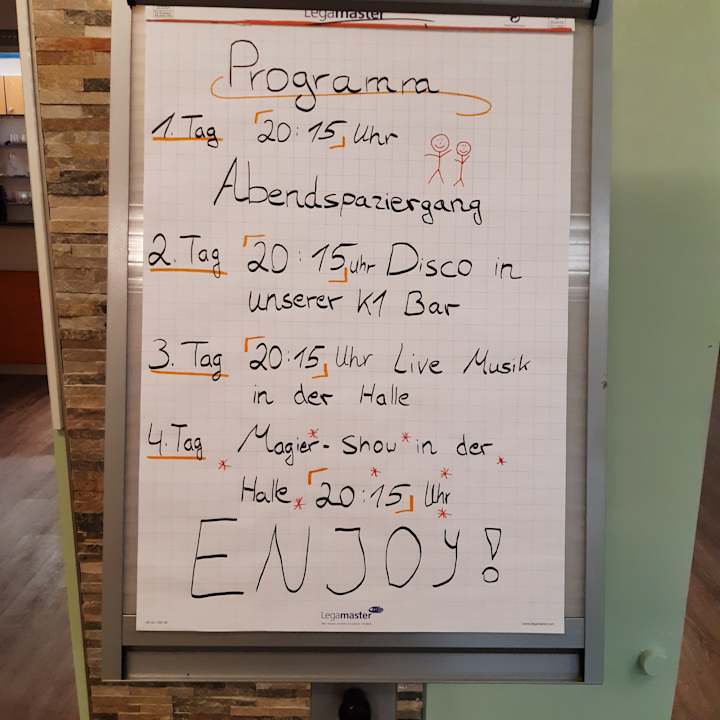 Legamaster
Programm
1. Tag 20:15 Uhr
Abendspaziergang
2. Tag 20:15 uhr Disco in
unserer K1 Bar
3. Tag 20:15 Uhr Live Musik
in der Halle
4. Tag Magier-Show in der
Halle 20:15 Uhr
ENJOY!
Legamaster